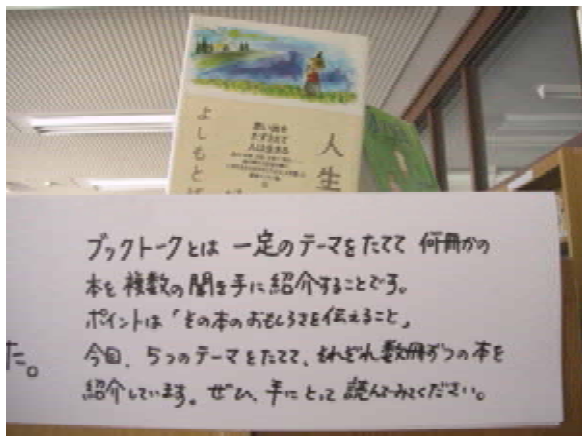 人生
よしもとば
思い出を
たずさえて
人は生きる
ブックトークとは 一定のテーマをたてて 何冊かの
本を 複数の聞き手に紹介することです。
ポイントは「その本のおもしろさを伝えること」
た。
今回、5つのテーマをたてて、それぞれ数冊ずつの本を
紹介しています。ぜひ、手にとって 読んでみてください。